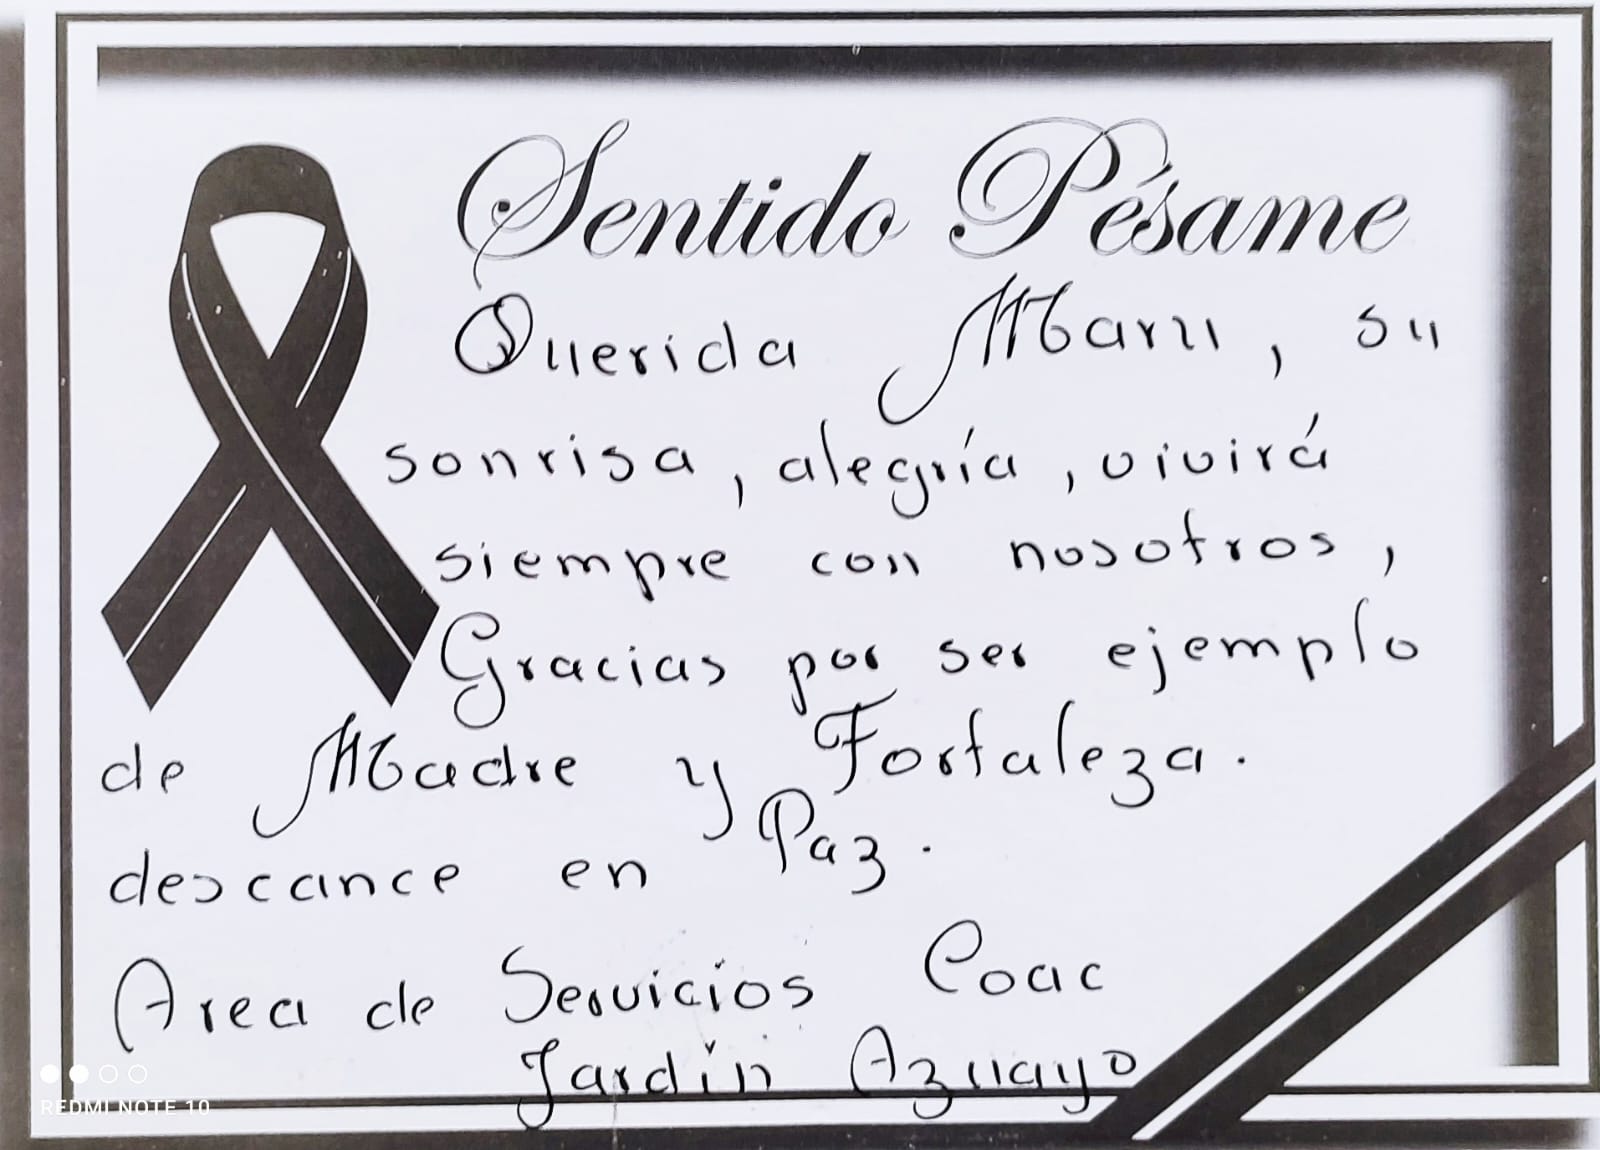 Sentido Pésame
Querida Maru, su
sonrisa, alegría, vivirá
siempre con nosotros,
Gracias por ser ejemplo
de Madre y Fortaleza.
descance en Paz.
Area de Servicios Coac
Jardín Azuayo
REDMI NOTE 10